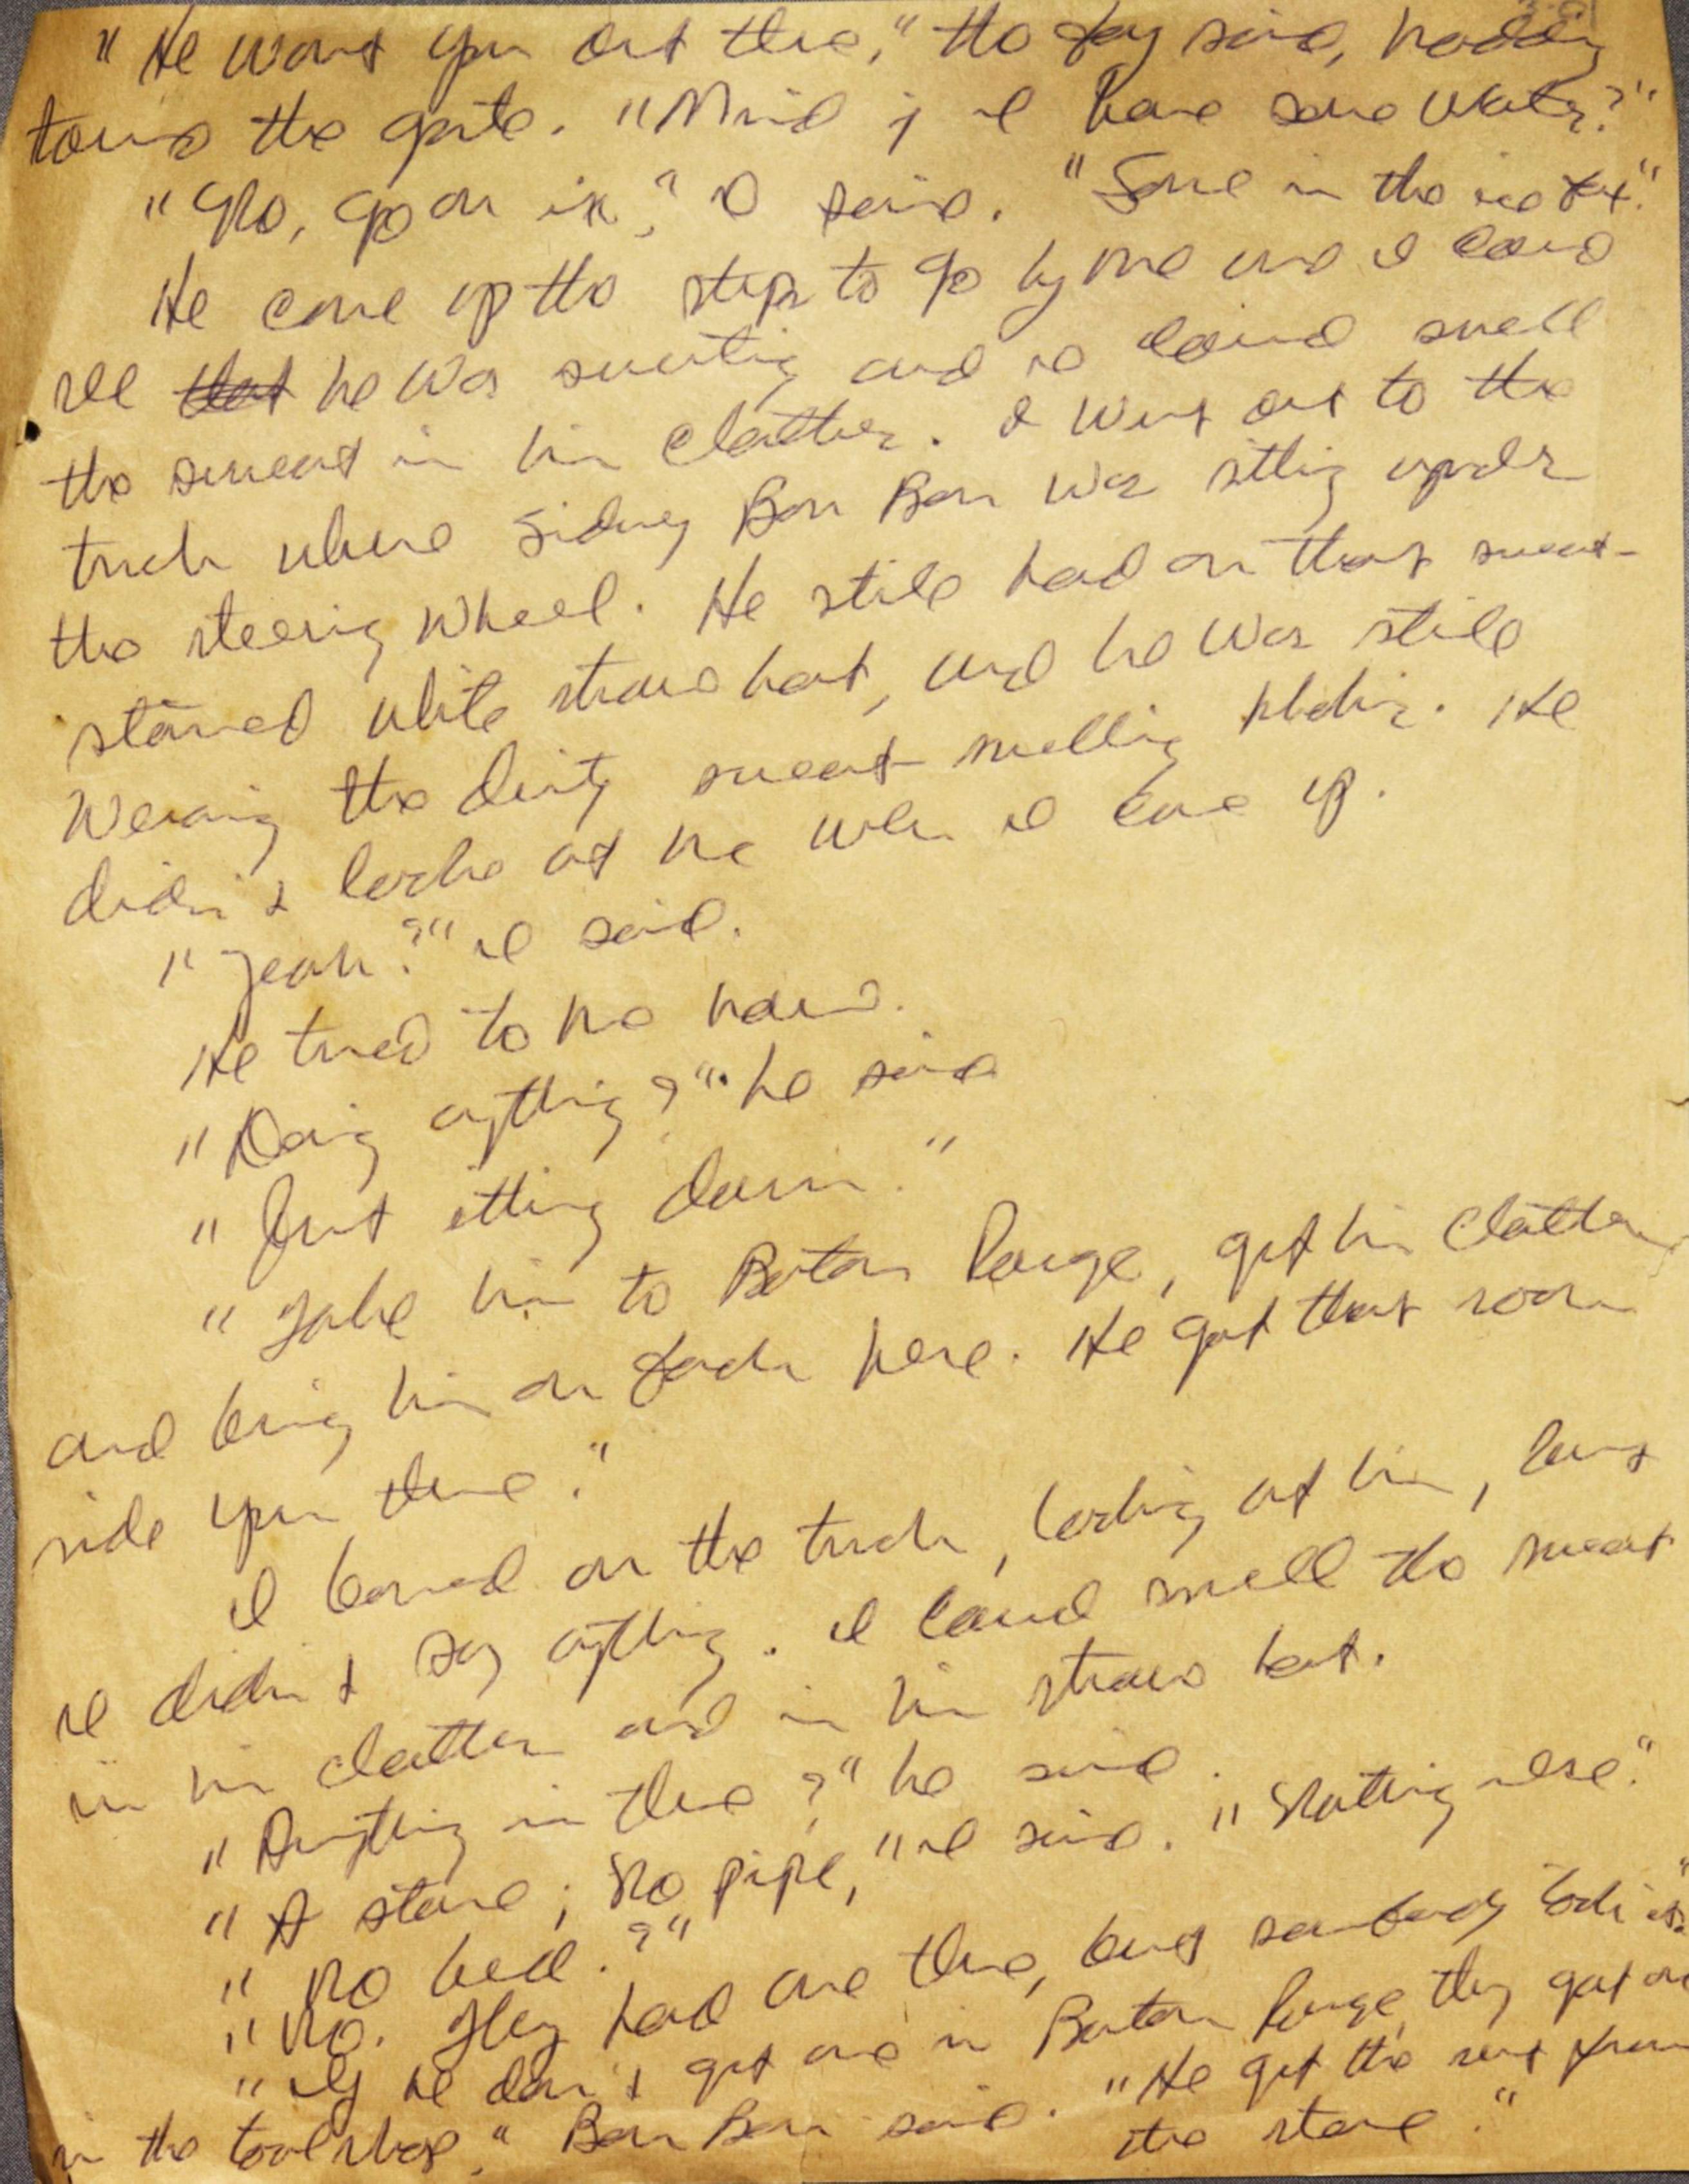 "He want you out there," the boy said, nodding
toward the gate. "Mind if I have some water?"
"No, go on in," I said. "Some in the ice box."
He came up the steps to go by me and I could
see that he was sweating and I could smell
the sweat in his clothes. I went out to the
truck where Sidney Bon Bon was sitting under
the steering wheel. He still had on that sweat-
stained white straw hat, and he was still
wearing the dirty sweat-smelling khakis. He
didn't look at me when I came up.
"Yeah?" I said.
He turned to me now.
"Doing anything?" he said
"Just sitting down."
"Take him to Baton Rouge, get his clothes
and bring him on back here. He got that room
side you there."
I leaned on the truck, looking at him, but
I didn't say anything. I could smell the sweat
in his clothes and in his straw hat.
"Anything in there?" he said.
"A stove; no pipe," I said. "Nothing else."
"No bed?"
"No. They had one there, but somebody took it."
"If he don't get one in Baton Rouge, they got one
in the tool shop." Bon Bon said. "He get the rest from
the store."